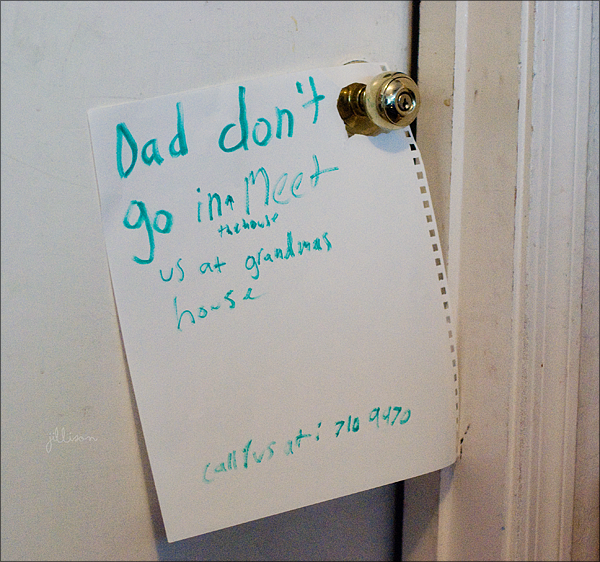 Dad don't
go in. Meet
the house
us at grandmas
house
call us at: 710 9470
jillison